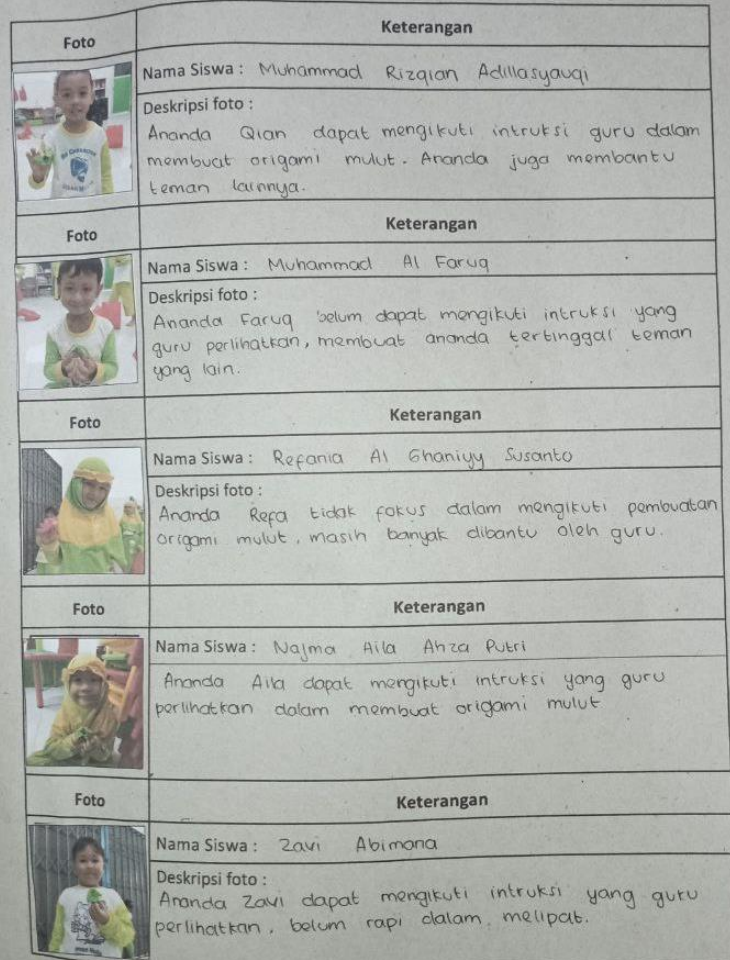 Foto
Keterangan
Nama Siswa : Muhammad Rizqian Adillasyauqi
Deskripsi foto :
Ananda Qian dapat mengikuti intruksi guru dalam
membuat origami mulut. Ananda juga membantu
teman lainnya.
Foto
Keterangan
Nama Siswa : Muhammad Al Faruq
Deskripsi foto :
Ananda Faruq belum dapat mengikuti intruksi yang
guru perlihatkan, membuat ananda tertinggal teman
yang lain.
Foto
Keterangan
Nama Siswa : Refania Al Ghaniyy Susanto
Deskripsi foto :
Ananda Refa tidak fokus dalam mengikuti pembuatan
origami mulut, masih banyak dibantu oleh guru.
Foto
Keterangan
Nama Siswa : Najma Aila Ahza Putri
Ananda Aila dapat mengikuti intruksi yang guru
perlihatkan dalam membuat origami mulut
Foto
Keterangan
Nama Siswa : Zavi Abimana
Deskripsi foto :
Ananda Zavi dapat mengikuti intruksi yang guru
perlihatkan, belum rapi dalam melipat.